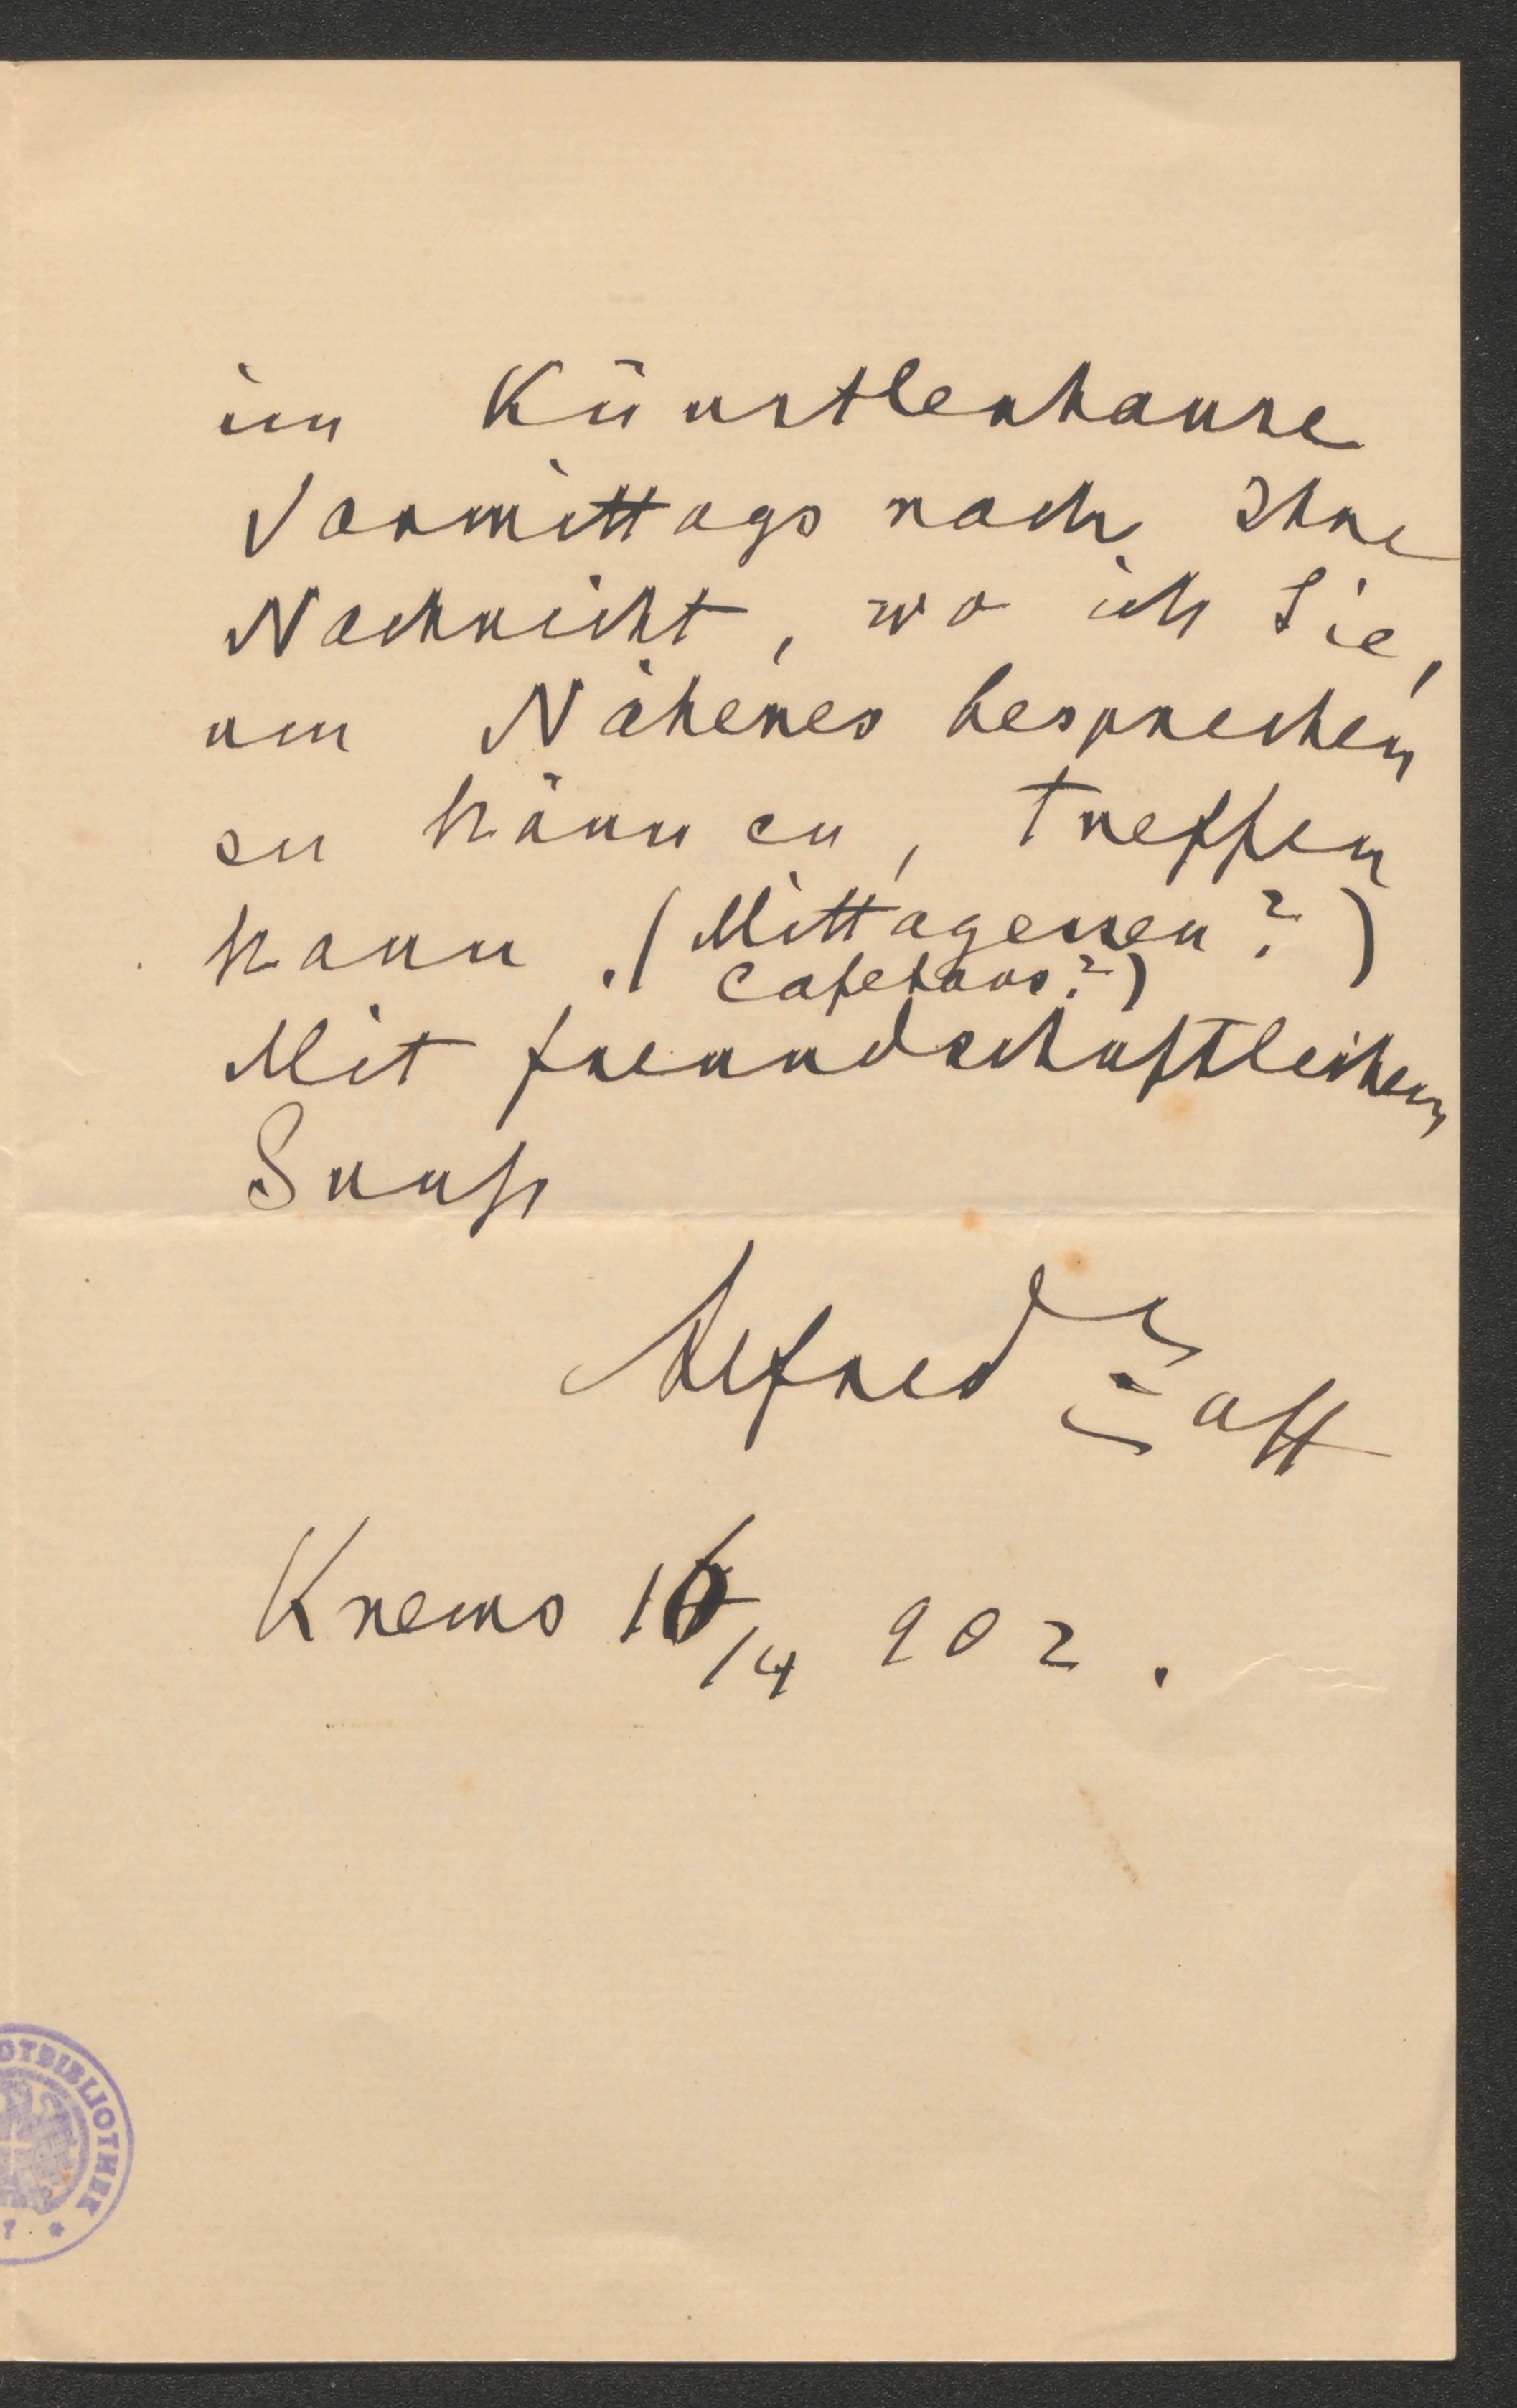 im Künstlerhause
Vormittags nach Ihre
Nachricht, wo ich Sie,
um Näheres besprechen
zu können, treffen
kann. (Mittagessen?)
Cafehaus?)
Mit freundschaftlichem
Gruß
Alfred Zoff
Krems 16/4 902.
OTBIBLIOTHEK